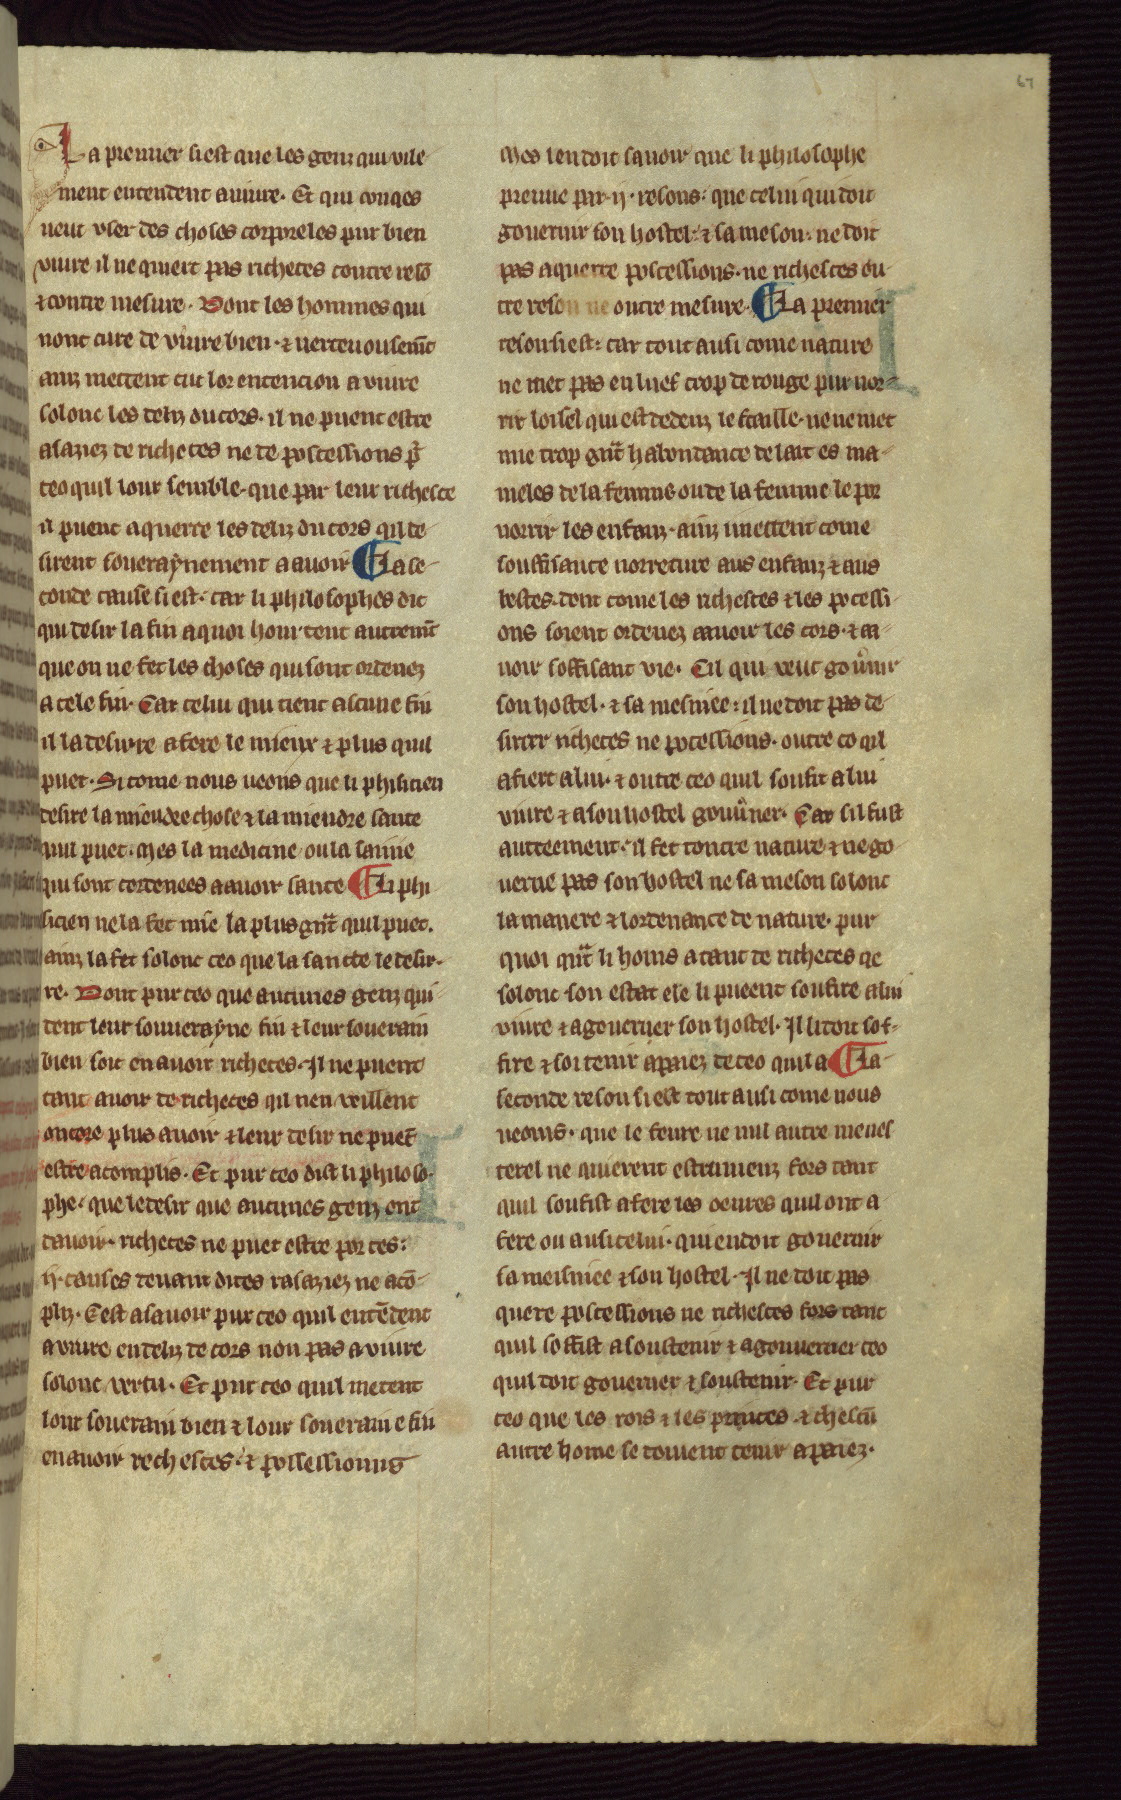 67
La premier si est que les genz qui vile
ment entendent a vivre. Et qui conqes
veut vser des choses corporeles pur bien
vivre il ne quiert pas richeces contre resō
⁊ contre mesure. Dont les hommes qui
nont cure de vivre bien. ⁊ vertevousem̄t
ainz mettent tut lor entencion a vivre
solonc les deliz du cors. il ne puent estre
asaziez de richeces ne de possessions
ceo quil lour semble. que par leur richesce
il puent aquerre les deliz du cors qil de
sirent soveraynement a avoir ¶ La se-
conde cause si est. car li philosophes dit
qui desir la fin a quoi hom tent autrem̄t
que on ne fet les choses qui sont ordenez
a cele fin. Car celui qui tient ascune fin
il la desirre a fere le mieux ⁊ plus quil
puet. Si come nous veons que li phisicien
desire la mieudre chose ⁊ la mieudre sante
quil puet. Mes la medicine ou la sainie
qui sont cordenees a avoir sante ¶ Li phi
sicien ne la fet mie la plus gn̄t quil puet.
ainz la fet solonc ceo que la sancte le desir-
re. Dont pur ceo que aucunes genz qui-
dent leur souverayne fin ⁊ leur soverain
bien soit en avoir richeces. Il ne puent
tant avoir de richeces qil nen veillent
oncore plus avoir ⁊ leur desir ne puet
estre acomplis. Et pur ceo dist li philoso-
phe. que le desir que aucunes genz ont
davoir. richeces ne puet estre por ces:
ij. causes devant dites rasaziez ne acō-
pliz. Cest a savoir pur ceo quil entēdent
a vivre en deliz de cors non pas a vivre
solonc vertu. Et pur ceo quil metent
lour soverain bien ⁊ lour soveraine fin
en avoir rechesces. ⁊ possessionns
Mes len doit savoir que li philosophe
preuve par .ij. resons: que celui qui doit
governir son hostel: ⁊ sa meson: ne doit
pas aquerre poscessions. ne richesces ou-
tre reson ne outre mesure. ¶ La premier
reson si est: car tout ausi come nature
ne met pas en luef trop de rouge pur nor-
rir loisel qui est dedenz lescaille. ne ne met
mie trop gn̄t habondance de lait es ma-
meles de la femme ou de la femme le por
norrir les enfanz. ainz mettent come
souffisante norreture aus enfanz ⁊ aus
bestes. dont come les richesces ⁊ les pocessi-
ons soient ordenez a avoir les cors. ⁊ a a-
voir soffisant vie. Cil qui veut gov̄nir
son hostel. ⁊ sa mesniee: il ne doit pas de-
sirrer richeces ne pocessions. outre co qil
afiert a lui. ⁊ outre ceo quil soufit a lui
vivre ⁊ a son hostel gouv̄ner. Car sil fust
autreement. il fet contre nature ⁊ ne go
verne pas son hostel ne sa meson solonc
la manere ⁊ lordenance de nature. pur
quoi qn̄t li homs a tant de richeces qe
solonc son estat ele li pueent soufire a lui
vivre ⁊ a governer son hostel. Il li doit sof-
fire ⁊ soi tenir apaiez de ceo quil a ¶ La-
seconde reson si est tout ausi come nous
veoms. que le fevre ne nul autre menes
terel ne quierent estrumenz fors tant
quil soufist a fere les oevres quil ont a
fere ou ausi celui. qui en doit governir
sa meisniee ⁊ son hostel. Il ne doit pas
quere poscessions ne richesces fors tant
quil soffist a soustenir ⁊ a gouverner ceo
quil doit governer ⁊ soustenir. Et pur
ceo que les rois ⁊ les princes ⁊ chescū
autre home se doivent tenir apaiez.